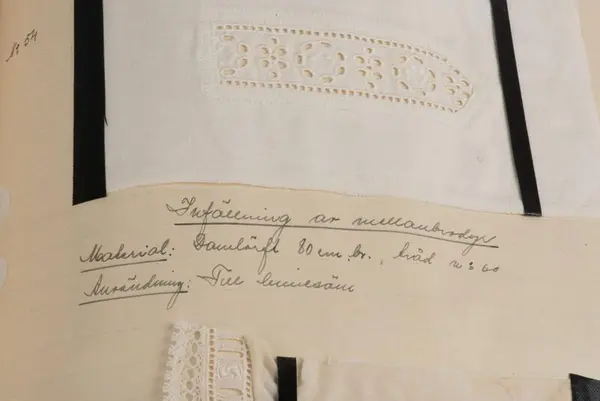 N: 54
Infällning av mellanbrodyr
Material: Damlärft 80 cm. br., tråd n:s 60
Användning: Till linnesöm